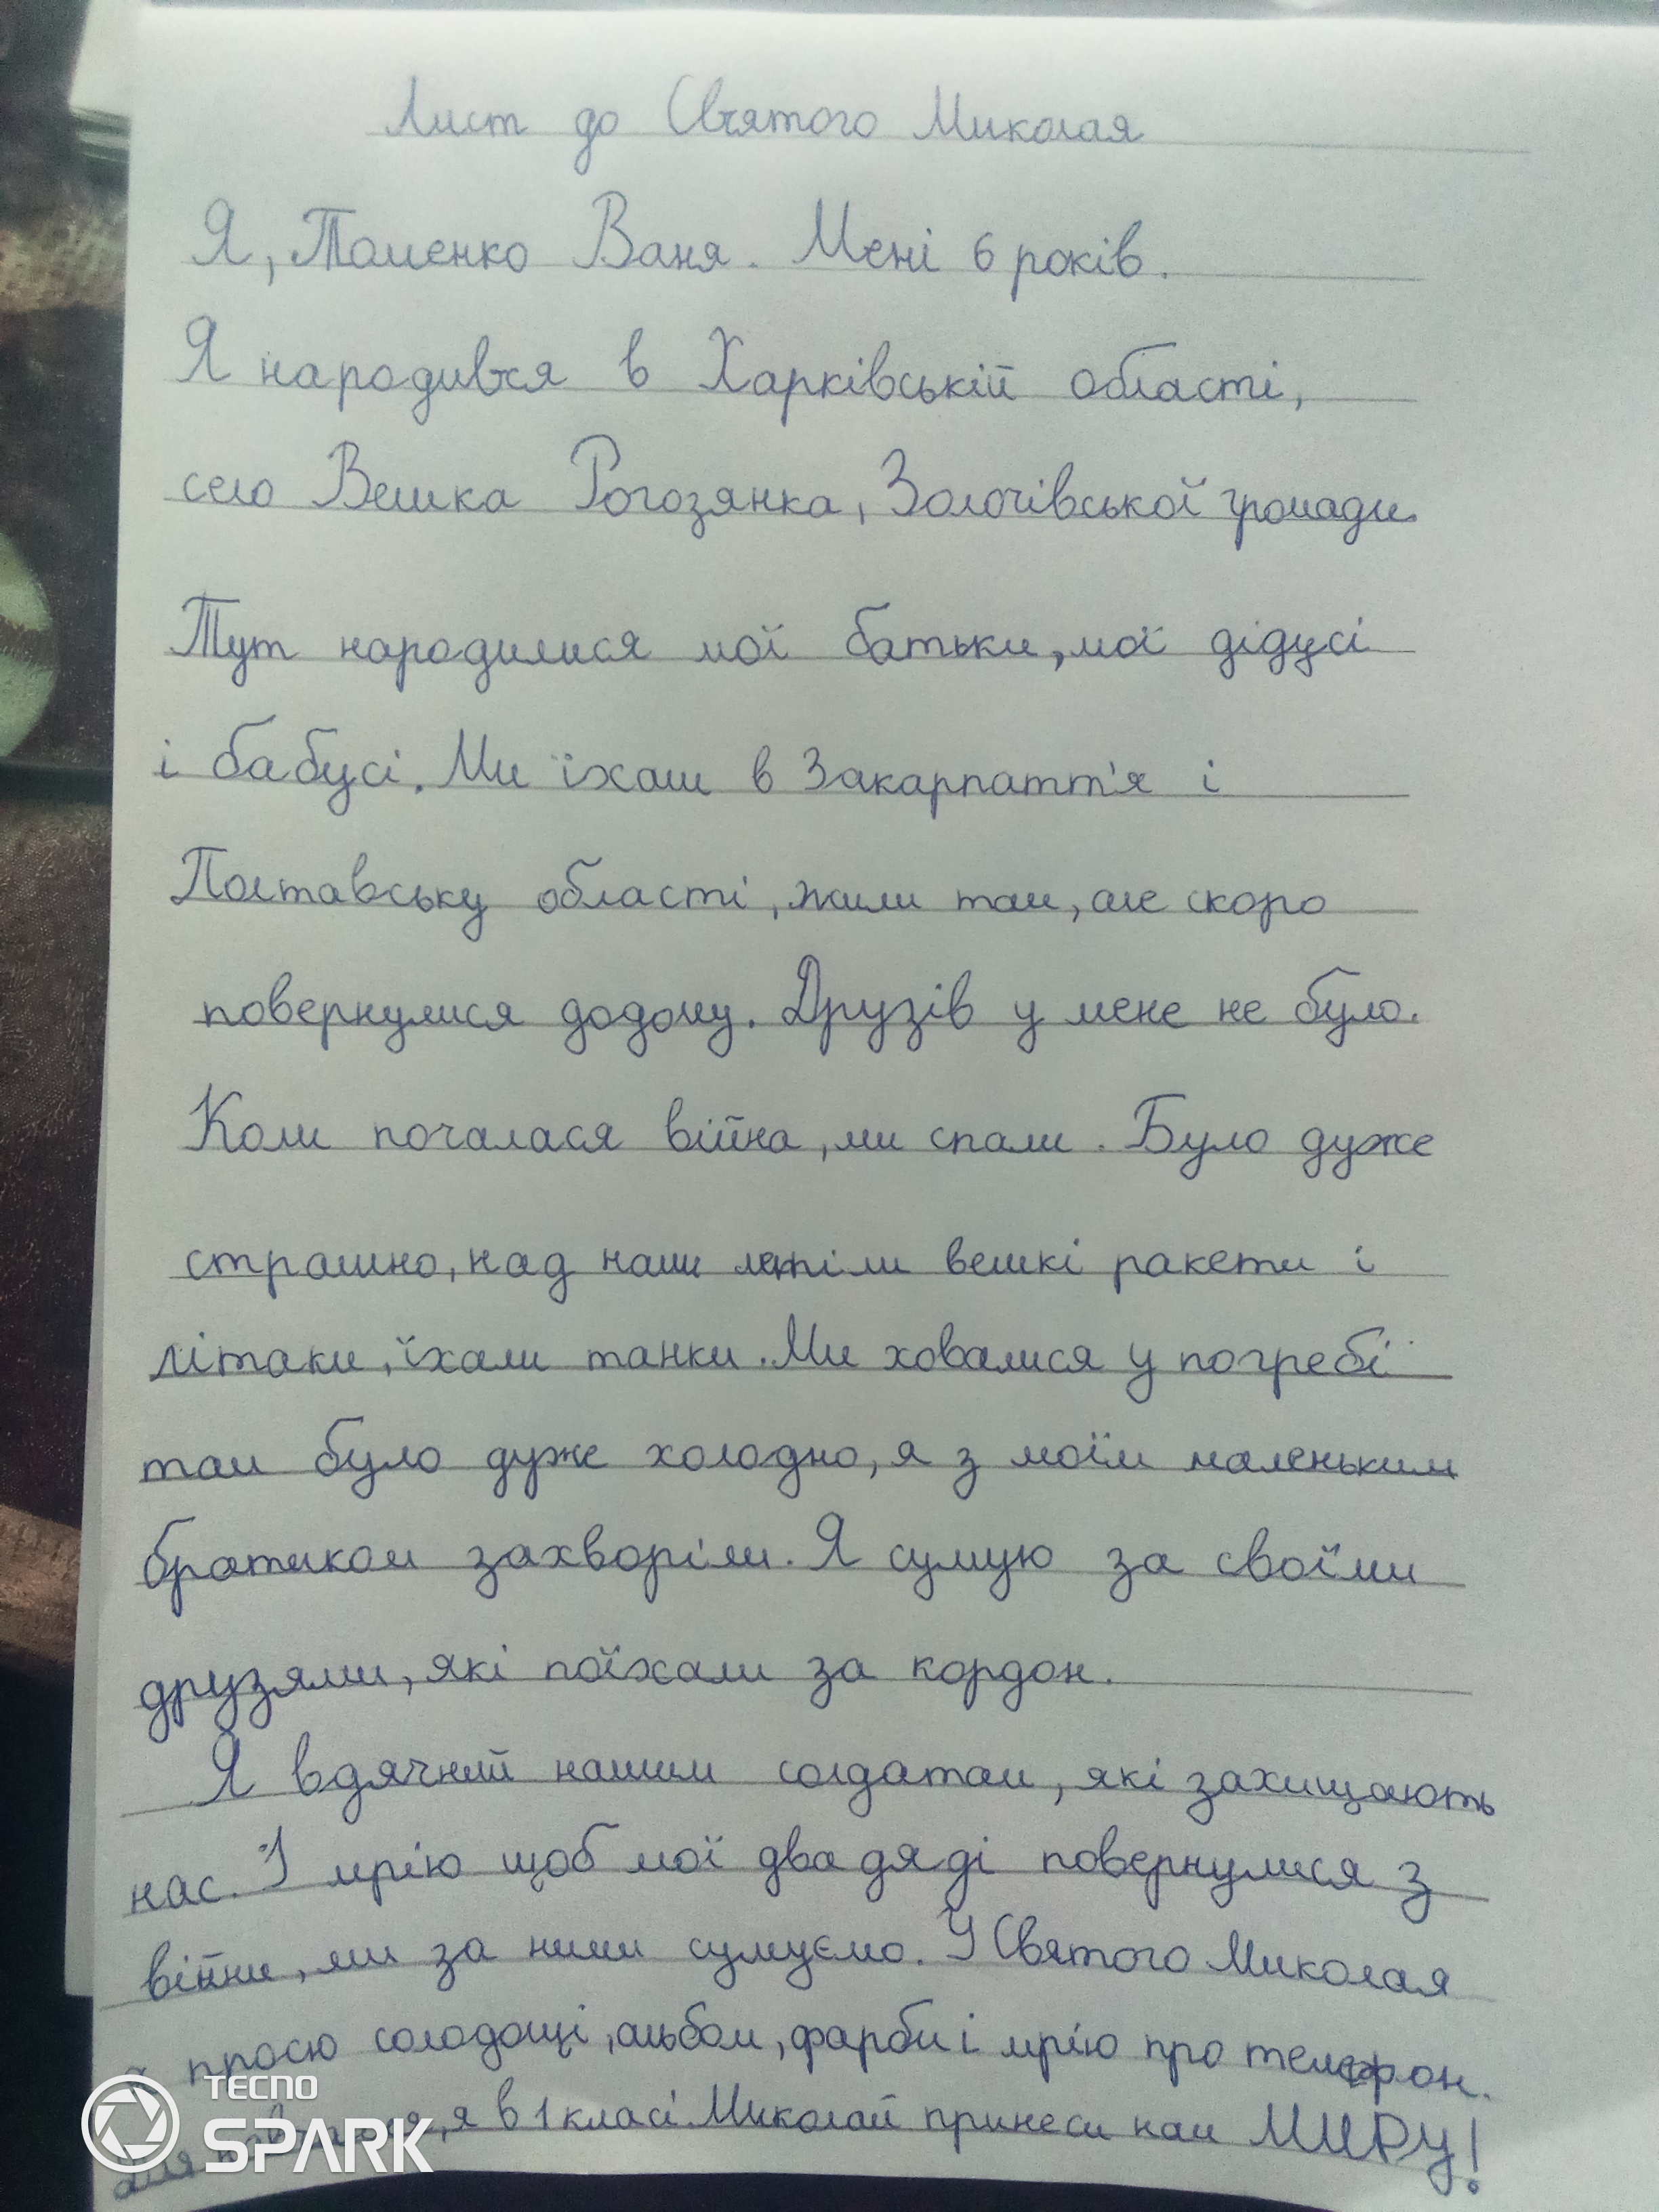 Лист до Святого Миколая
Я, Томенко Ваня. Мені 6 років.
Я народився в Харківській області,
село Велика Рогозянка, Золочівської громади.
Тут народилися мої батьки, мої дідусі
і бабусі. Ми їхали в Закарпаття і
Полтавську області, жили там, але скоро
повернулися додому. Друзів у мене не було.
Коли почалася війна, ми спали. Було дуже
страшно, над нами летіли великі ракети і
літаки, їхали танки. Ми ховалися у погребі
там було дуже холодно, я з моїм маленьким
братиком захворіли. Я сумую за своїми
друзями, які поїхали за кордон.
Я вдячний нашим солдатам, які захищають
нас. І мрію щоб мої два дяді повернулися з
війни, ми за ними сумуємо. У Святого Миколая
я прошу солодощі, альбом, фарби і мрію про телефон.
для навчання, я в 1 класі. Миколай принеси нам МИРУ!
TECNO
SPARK